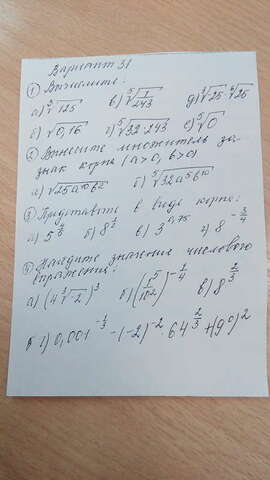 Вариант 31
① Вычислите:
а) ∛125 в) ⁵√(1/243) д) ⁴√25·⁴√25
б) √0,16 г) ⁵√(32·243) е) ⁵√0
② Вынесите множитель за
знак корня (a>0, b>0)
а) √25a¹⁰b¹² б) ⁵√32a⁵b¹⁰
③ Представьте в виде корня:
б) 8^(1/2) в) 3^0,75 г) 8^(-3/4)
④ Найдите значение числового
выражения:
а) (4∛-2)³ в) 8^(2/3)
г) 0,001^(-1/3) - (-2)^-2 · 64^(2/3) + (9⁰)²